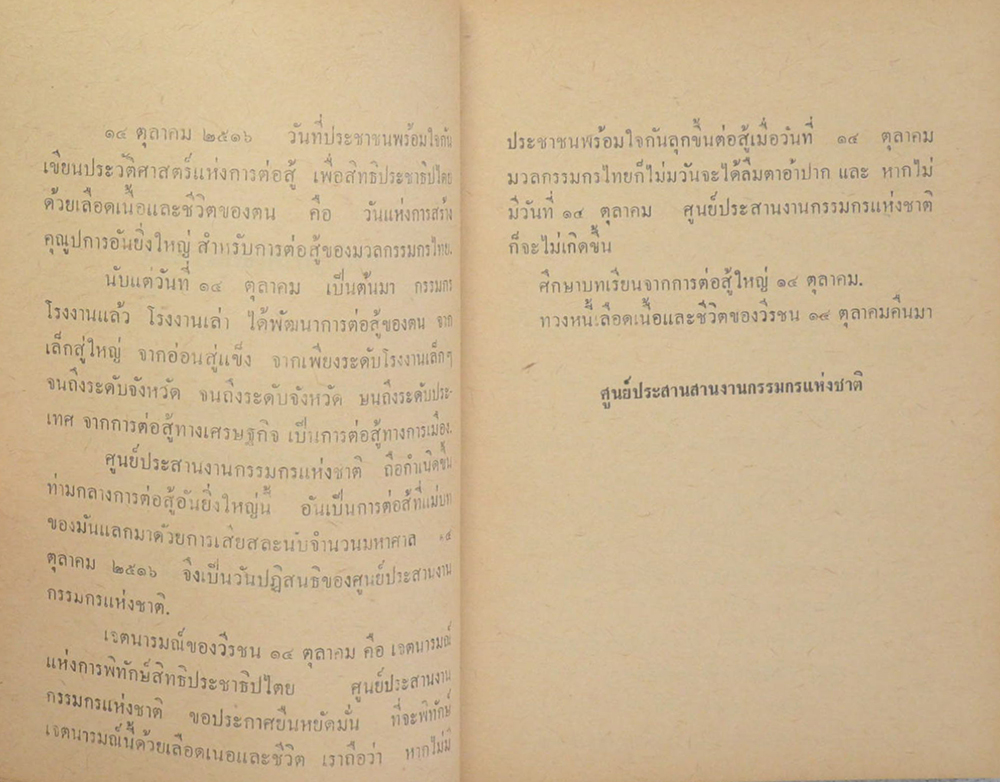 ๑๔ ตุลาคม ๒๕๑๖ วันที่ประชาชนพร้อมใจกัน
เขียนประวัติศาสตร์แห่งการต่อสู้ เพื่อสิทธิประชาธิปไตย
ด้วยเลือดเนื้อและชีวิตของตน คือ วันแห่งการสร้าง
คุณูปการอันยิ่งใหญ่ สำหรับการต่อสู้ของมวลกรรมกรไทย.
นับแต่วันที่ ๑๔ ตุลาคม เป็นต้นมา กรรมกร
โรงงานแล้ว โรงงานเล่า ได้พัฒนาการต่อสู้ของตน จาก
เล็กสู่ใหญ่ จากอ่อนสู่แข็ง จากเพียงระดับโรงงานเล็กๆ
จนถึงระดับจังหวัด จนถึงระดับจังหวัด จนถึงระดับประ-
เทศ จากการต่อสู้ทางเศรษฐกิจ เป็นการต่อสู้ทางการเมือง.
ศูนย์ประสานงานกรรมกรแห่งชาติ ถือกำเนิดขึ้น
ท่ามกลางการต่อสู้อันยิ่งใหญ่นี้ อันเป็นการต่อสู้ที่แม่บท
ของมันแลกมาด้วยการเสียสละนับจำนวนมหาศาล ๑๔
ตุลาคม ๒๕๑๖ จึงเป็นวันปฏิสนธิของศูนย์ประสานงาน
กรรมกรแห่งชาติ.
เจตนารมณ์ของวีรชน ๑๔ ตุลาคม คือ เจตนารมณ์
แห่งการพิทักษ์สิทธิประชาธิปไตย ศูนย์ประสานงาน
กรรมกรแห่งชาติ ขอประกาศยืนหยัดมั่น ที่จะพิทักษ์
เจตนารมณ์นี้ด้วยเลือดเนอและชีวิต เราถือว่า หากไม่มี
ประชาชนพร้อมใจกันลุกขึ้นต่อสู้เมื่อวันที่ ๑๔ ตุลาคม
มวลกรรมกรไทยก็ไม่มีวันจะได้ลืมตาอ้าปาก และ หากไม่
มีวันที่ ๑๔ ตุลาคม ศูนย์ประสานงานกรรมกรแห่งชาติ
ก็จะไม่เกิดขึ้น
ศึกษาบทเรียนจากการต่อสู้ใหญ่ ๑๔ ตุลาคม.
ทวงหนี้เลือดเนื้อและชีวิตของวีรชน ๑๔ ตุลาคมคืนมา
ศูนย์ประสานสานงานกรรมกรแห่งชาติ